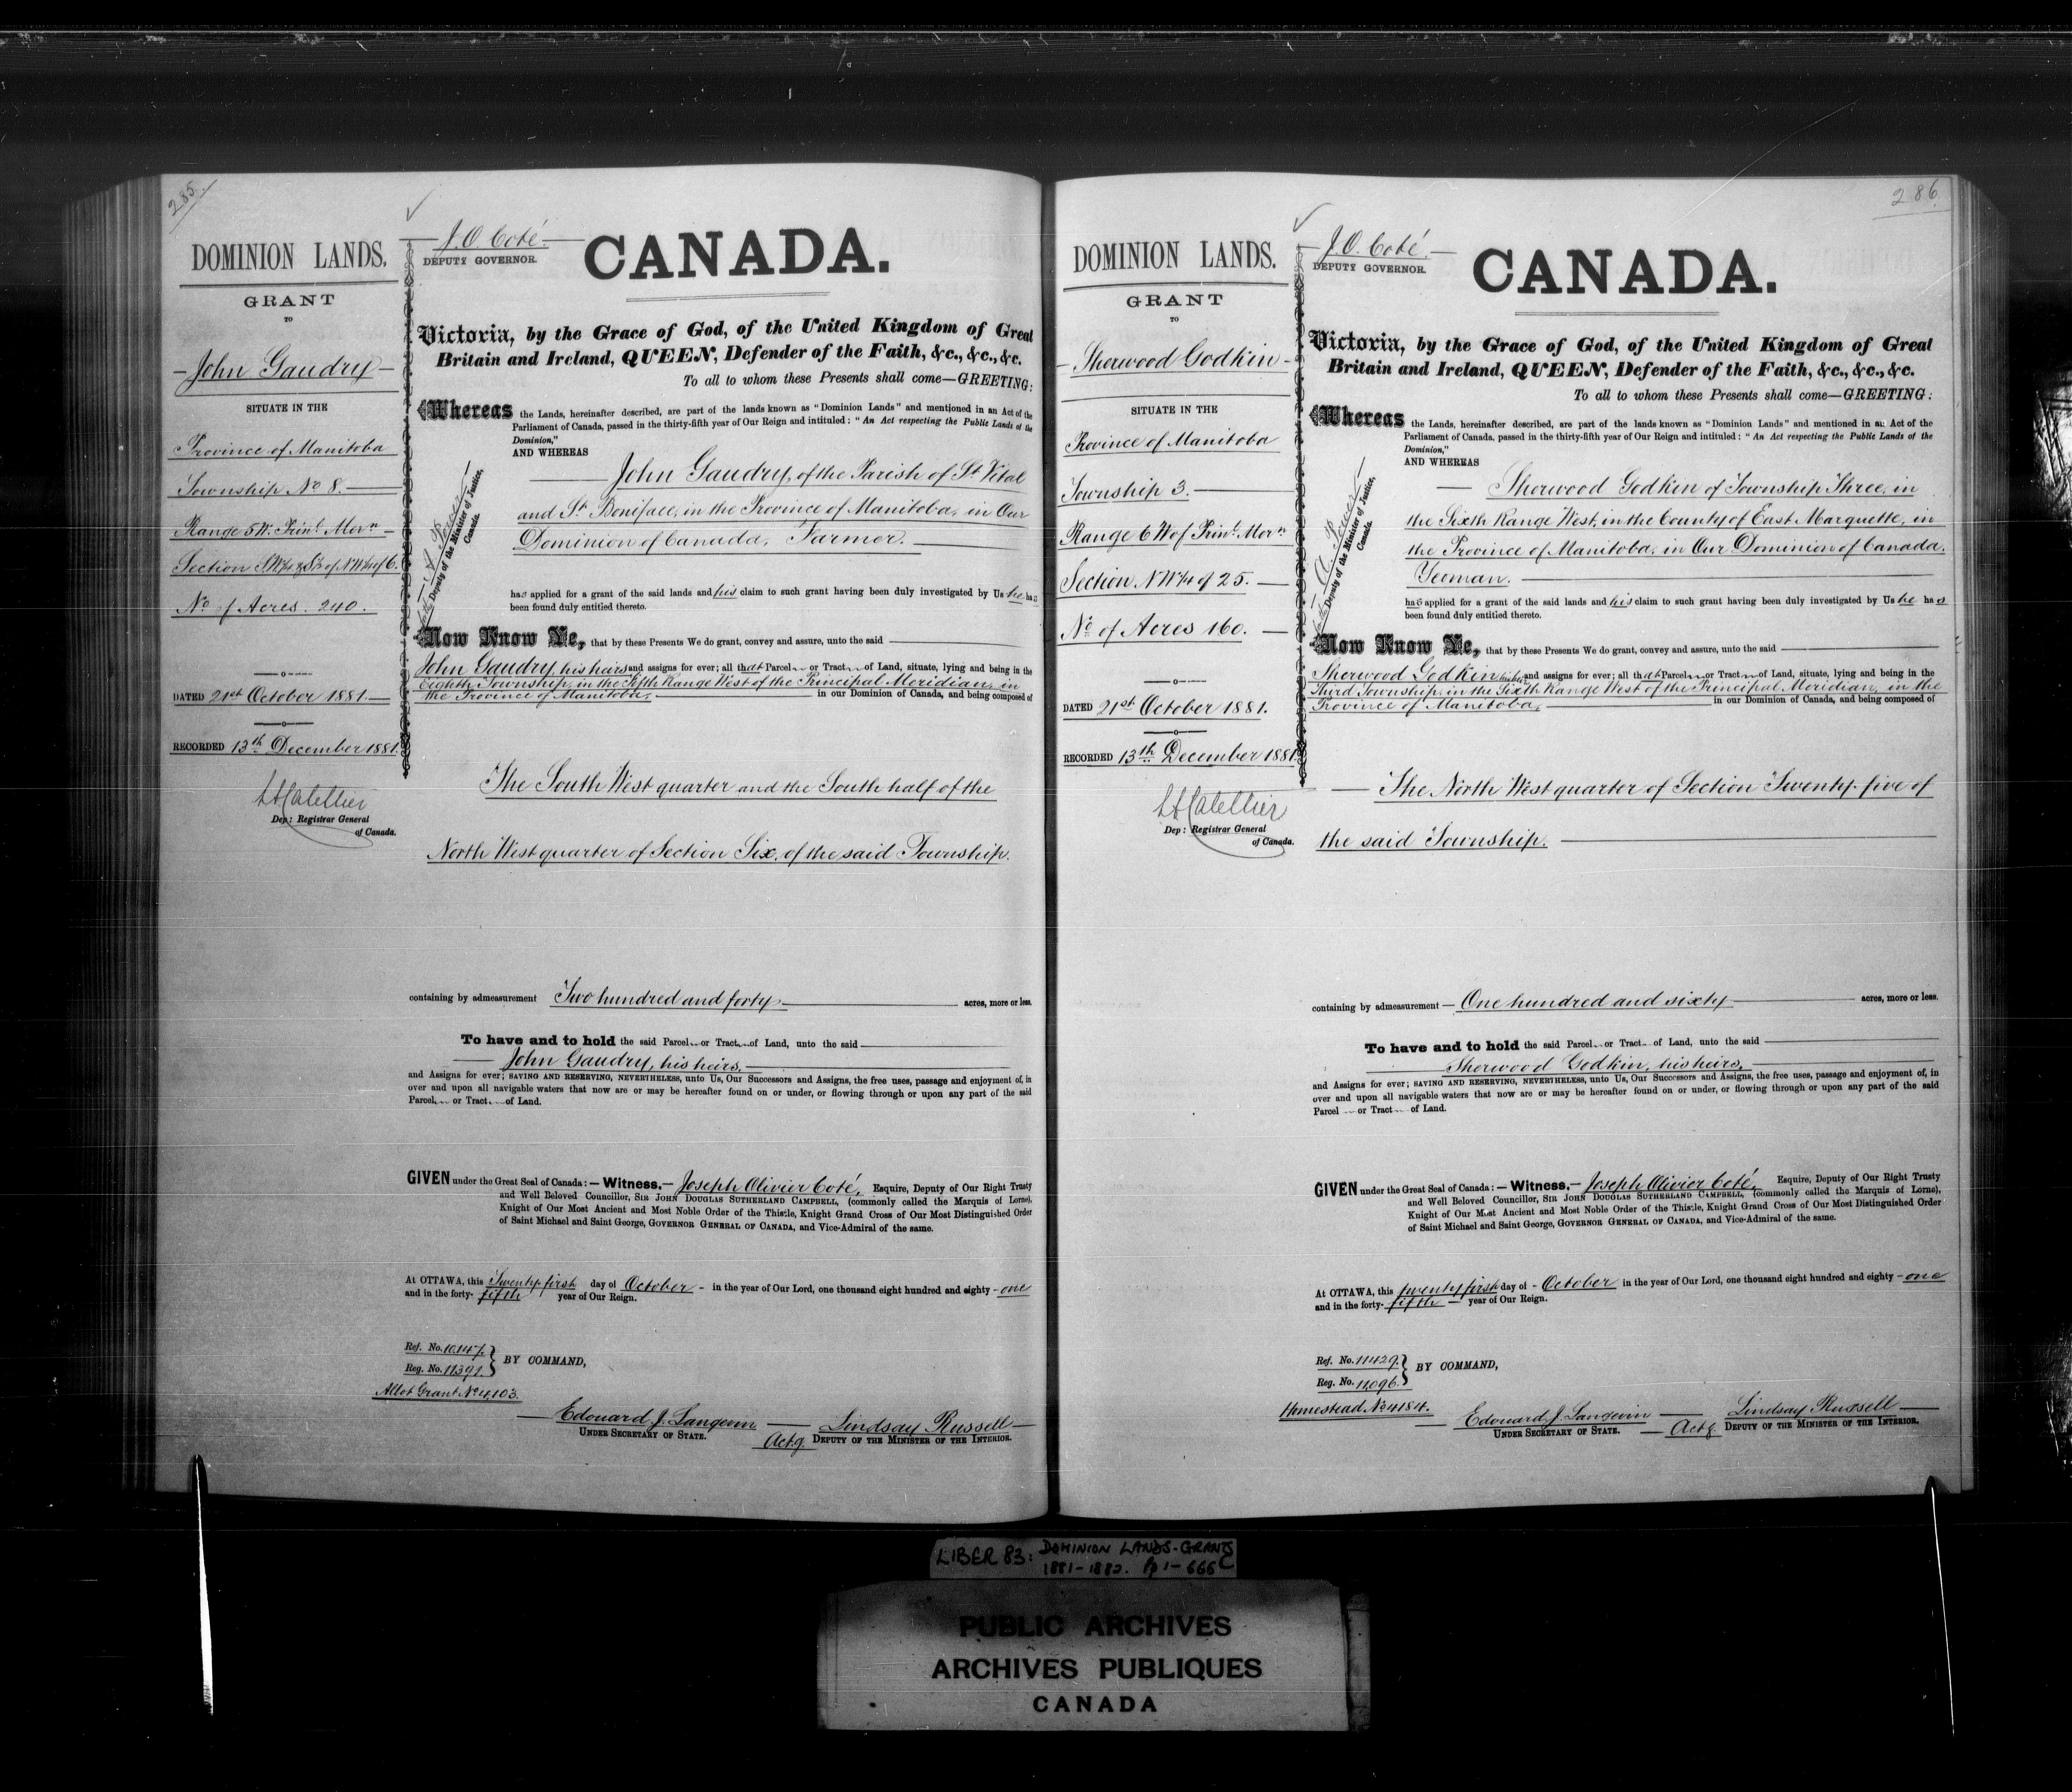 285.
DOMINION LANDS.
GRANT
TO
John Gaudry
SITUATE IN THE
Province of Manitoba
Township No 8.
Range 5 W. Prinl. Mern
Section S.W¼ & S½ of N.W¼ of 6.
No of Acres. 240.
DATED 21st October 1881.
RECORDED 13th December 1881.
L A Catellier
Dep: Registrar General
of Canada.
J. O. Coté
DEPUTY GOVERNOR.
CANADA.
Victoria, by the Grace of God, of the United Kingdom of Great
Britain and Ireland, QUEEN, Defender of the Faith, &c., &c., &c.
To all to whom these Presents shall come—GREETING:
Whereas the Lands, hereinafter described, are part of the lands known as "Dominion Lands" and mentioned in an Act of the
Parliament of Canada, passed in the thirty-fifth year of Our Reign and intituled: "An Act respecting the Public Lands of the
Dominion,"
AND WHEREAS
John Gaudry, of the Parish of St. Vital
and St. Boniface, in the Province of Manitoba, in Our
Dominion of Canada, Farmer.
A. Power
Deputy of the Minister of Justice,
Canada.
has applied for a grant of the said lands and his claim to such grant having been duly investigated by Us he has
been found duly entitled thereto.
Now Know Ye, that by these Presents We do grant, convey and assure, unto the said
John Gaudry, his heirs and assigns for ever; all that Parcel or Tract of Land, situate, lying and being in the
Eighth Township, in the Fifth Range West of the Principal Meridian, in
the Province of Manitoba, in our Dominion of Canada, and being composed of
The South West quarter and the South half of the
North West quarter of Section Six, of the said Township.
containing by admeasurement Two hundred and forty acres, more or less.
To have and to hold the said Parcel or Tract of Land, unto the said
John Gaudry, his heirs,
and Assigns for ever; SAVING AND RESERVING, NEVERTHELESS, unto Us, Our Successors and Assigns, the free uses, passage and enjoyment of, in
over and upon all navigable waters that now are or may be hereafter found on or under, or flowing through or upon any part of the said
Parcel or Tract of Land.
GIVEN under the Great Seal of Canada:—Witness.—Joseph Olivier Coté, Esquire, Deputy of Our Right Trusty
and Well Beloved Councillor, SIR JOHN DOUGLAS SUTHERLAND CAMPBELL, (commonly called the Marquis of Lorne),
Knight of Our Most Ancient and Most Noble Order of the Thistle, Knight Grand Cross of Our Most Distinguished Order
of Saint Michael and Saint George, GOVERNOR GENERAL OF CANADA, and Vice-Admiral of the same.
At OTTAWA, this Twenty first day of October - in the year of Our Lord, one thousand eight hundred and eighty - one
and in the forty- fifth year of Our Reign.
Ref. No. 10147.
Reg. No. 11391.
BY COMMAND,
Allot Grant No 4103.
Edouard J. Langevin
UNDER SECRETARY OF STATE.
Lindsay Russell
Actg. DEPUTY OF THE MINISTER OF THE INTERIOR.
286.
DOMINION LANDS.
GRANT
TO
Sherwood Godkin
SITUATE IN THE
Province of Manitoba
Township 3.
Range 6 W of Prinl. Mern
Section N W¼ of 25.
No of Acres 160.
DATED 21st October 1881.
RECORDED 13th December 1881.
L A Catellier
Dep: Registrar General
of Canada.
J. O. Coté.
DEPUTY GOVERNOR.
CANADA.
Victoria, by the Grace of God, of the United Kingdom of Great
Britain and Ireland, QUEEN, Defender of the Faith, &c., &c., &c.
To all to whom these Presents shall come—GREETING:
Whereas the Lands, hereinafter described, are part of the lands known as "Dominion Lands" and mentioned in an Act of the
Parliament of Canada, passed in the thirty-fifth year of Our Reign and intituled: "An Act respecting the Public Lands of the
Dominion,"
AND WHEREAS
Sherwood Godkin of Township Three, in
the Sixth Range West, in the County of East Marquette, in
the Province of Manitoba, in Our Dominion of Canada.
Yeoman.
A. Power
Deputy of the Minister of Justice,
Canada.
has applied for a grant of the said lands and his claim to such grant having been duly investigated by Us he has
been found duly entitled thereto.
Now Know Ye, that by these Presents We do grant, convey and assure, unto the said
Sherwood Godkin his heirs and assigns for ever; all that Parcel or Tract of Land, situate, lying and being in the
Third Township, in the Sixth Range West of the Principal Meridian, in the
Province of Manitoba, in our Dominion of Canada, and being composed of
The North West quarter of Section Twenty-five of
the said Township.
containing by admeasurement One hundred and sixty acres, more or less.
To have and to hold the said Parcel or Tract of Land, unto the said
Sherwood Godkin, his heirs,
and Assigns for ever; SAVING AND RESERVING, NEVERTHELESS, unto Us, Our Successors and Assigns, the free uses, passage and enjoyment of, in
over and upon all navigable waters that now are or may be hereafter found on or under, or flowing through or upon any part of the said
Parcel or Tract of Land.
GIVEN under the Great Seal of Canada:—Witness.—Joseph Olivier Coté, Esquire, Deputy of Our Right Trusty
and Well Beloved Councillor, SIR JOHN DOUGLAS SUTHERLAND CAMPBELL, (commonly called the Marquis of Lorne),
Knight of Our Most Ancient and Most Noble Order of the Thistle, Knight Grand Cross of Our Most Distinguished Order
of Saint Michael and Saint George, GOVERNOR GENERAL OF CANADA, and Vice-Admiral of the same.
At OTTAWA, this twenty first day of - October in the year of Our Lord, one thousand eight hundred and eighty - one
and in the forty- fifth year of Our Reign.
Ref. No. 11429.
Reg. No. 11,096.
BY COMMAND,
Homestead No 4184.
Edouard J. Langevin
UNDER SECRETARY OF STATE.
Lindsay Russell
Actg. DEPUTY OF THE MINISTER OF THE INTERIOR.
LIBER 83: DOMINION LANDS-GRANTS
1881-1882. Pp 1-666
PUBLIC ARCHIVES
ARCHIVES PUBLIQUES
CANADA